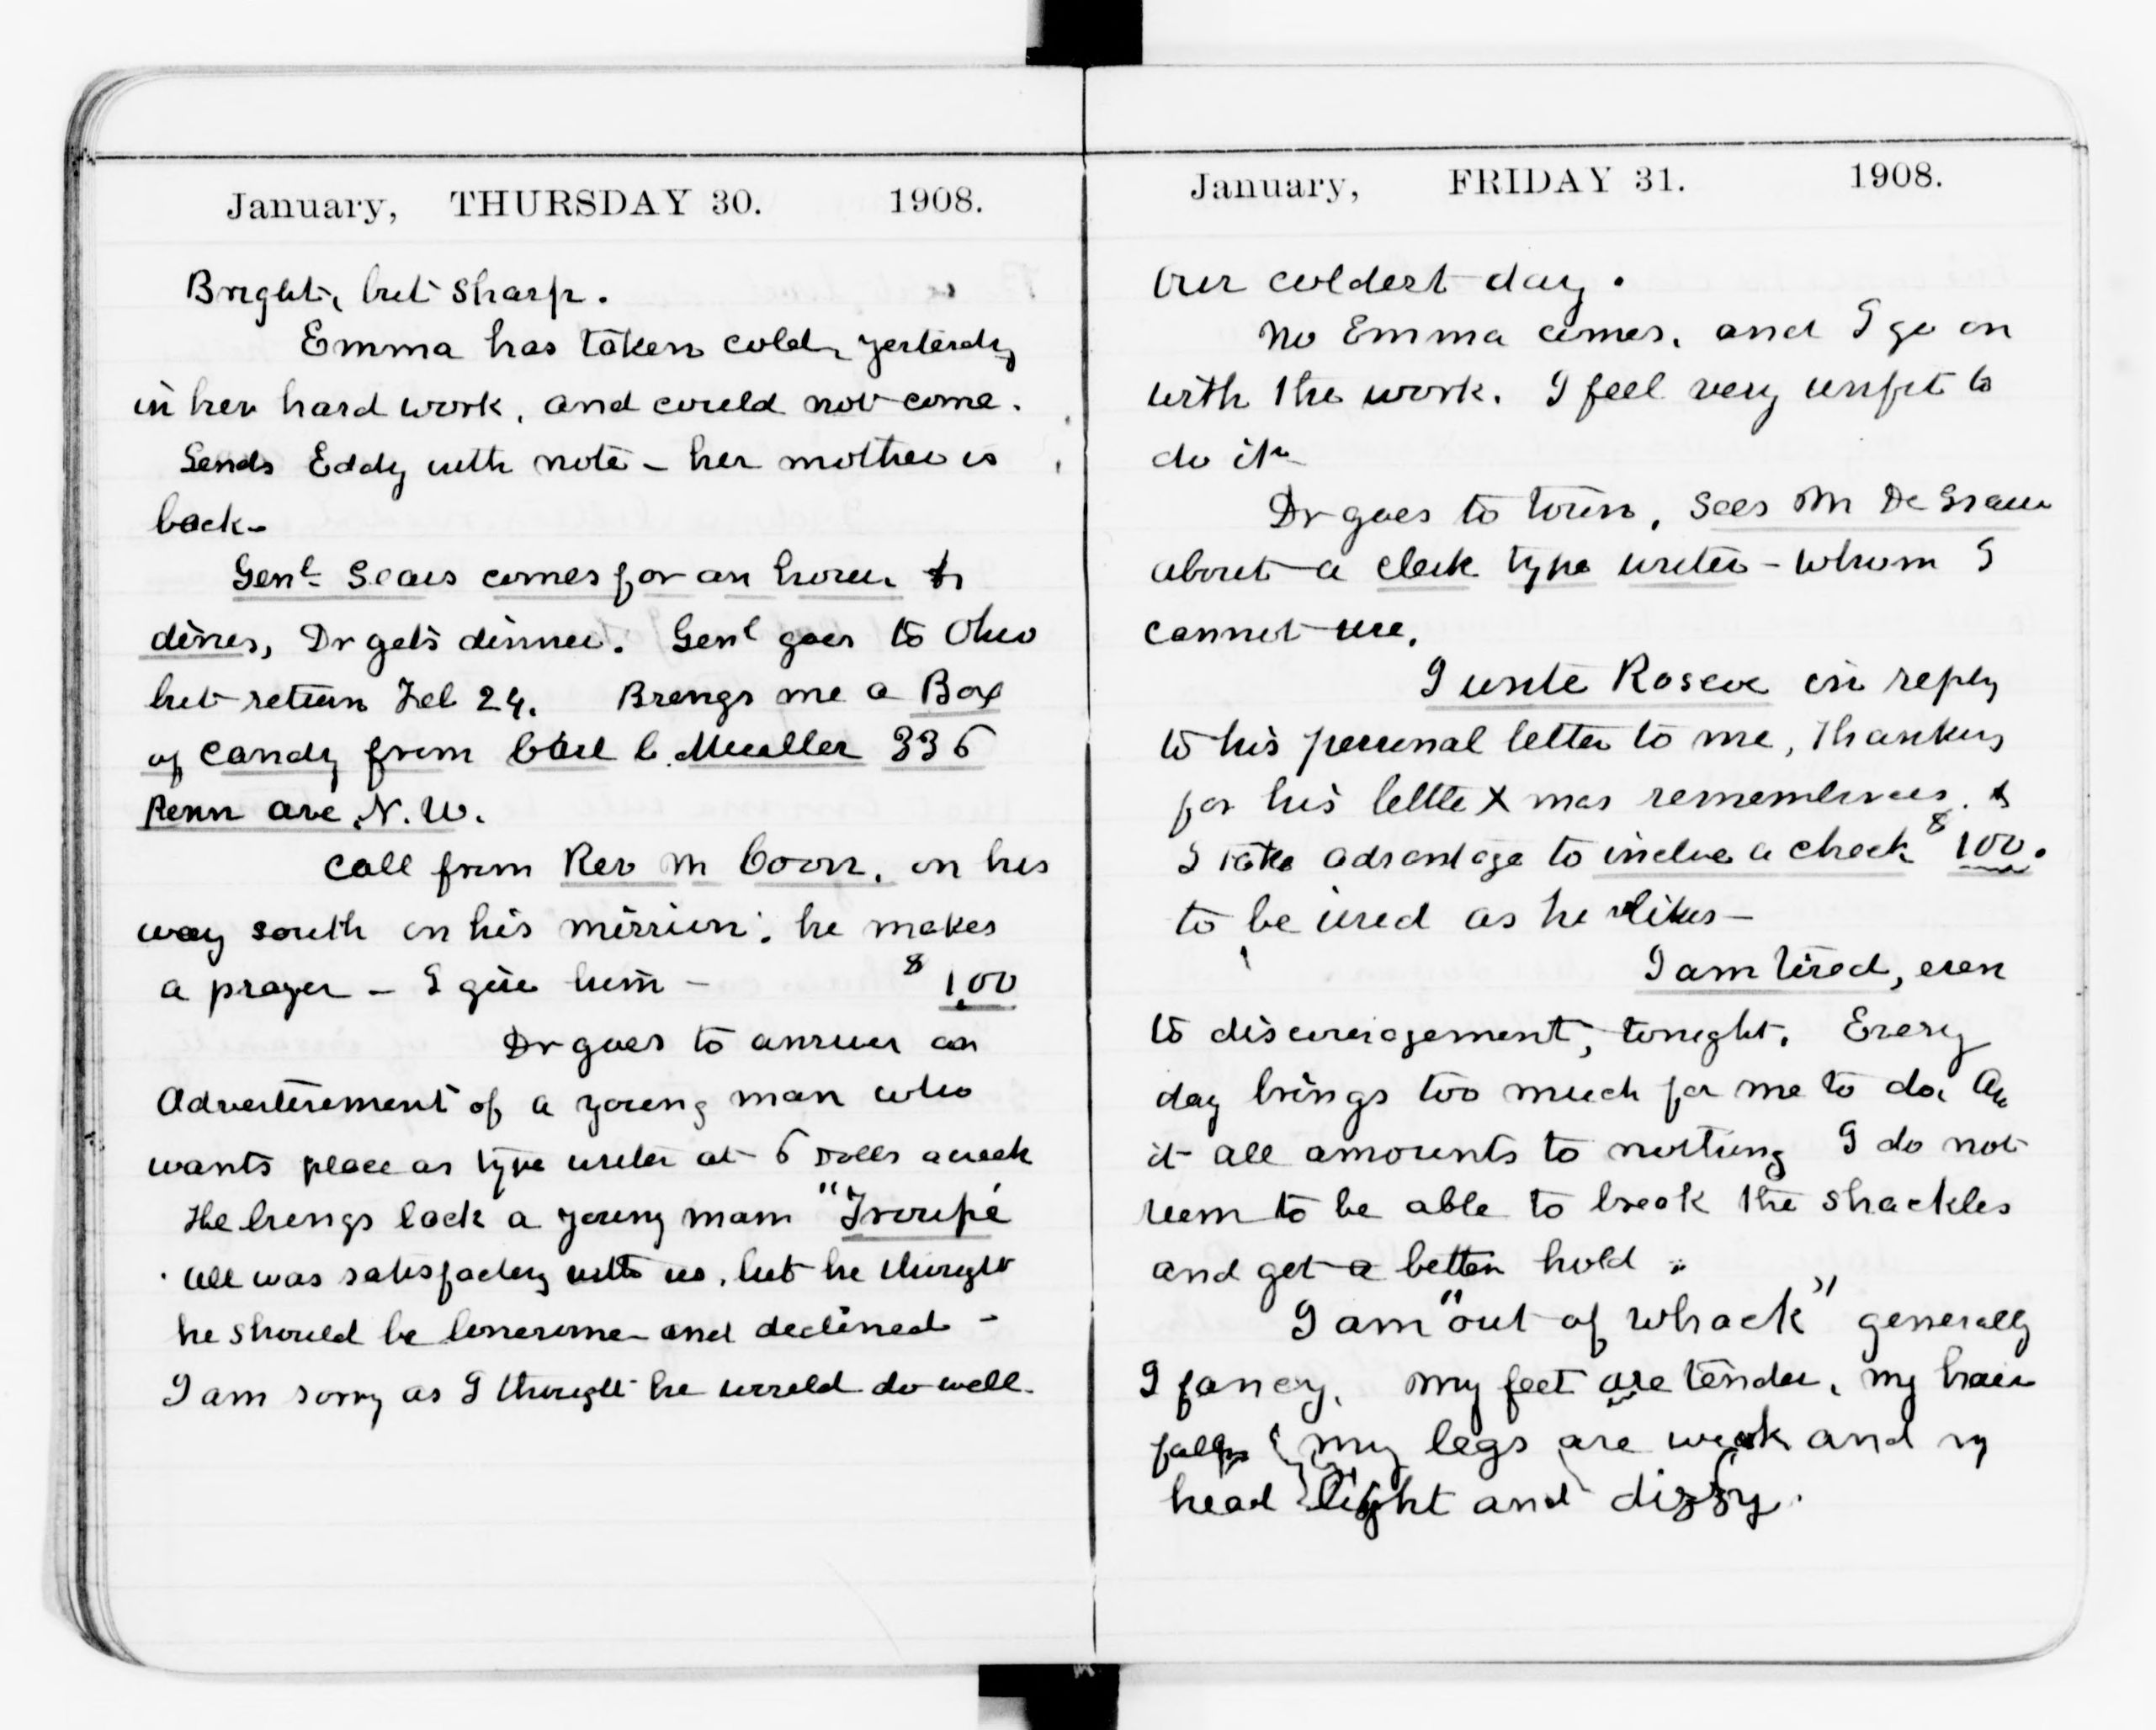 January, THURSDAY 30. 1908.
Bright, but sharp.
Emma has taken cold, yesterday
in her hard work, and could not come.
Sends Eddy with note - her mother is
back-
Genl Sears comes for an hour &
dines, Dr gets dinner. Genl goes to Ohio
but return Feb 24. Brings me a Box
of Candy from Carl C. Mueller 336
Penn ave. N.W.
Call from Rev Mr Coon, on his
way south on his mission. he makes
a prayer - I give him - $1.00
Dr goes to answer an
Advertisement of a young man who
wants place as type writer at 6 Dolls a week
He brings back a young man
All was satisfactory with us, but he thought
he should be lonesome and declined -
I am sorry as I thought he would do well.
January, FRIDAY 31. 1908.
Our coldest day.
No Emma comes, and I go on
with the work. I feel very unfit to
do it-
Dr goes to town, sees Mr De Graw
about a clerk type writer - whom I
cannot use.
I write Roscoe in reply
to his personal letter to me, thanking
for his little Xmas remembrances. &
I take advantage to inclose a check $100.
to be used as he likes-
I am tired, even
to discouragement, tonight. Every
day brings too much for me to do. An
it all amounts to nothing I do not
seem to be able to break the shackles
and get a better hold
I am "out of whack" generally
I fancy. My feet are tender, my hair
falls my legs are weak and my
head light and dizzy.